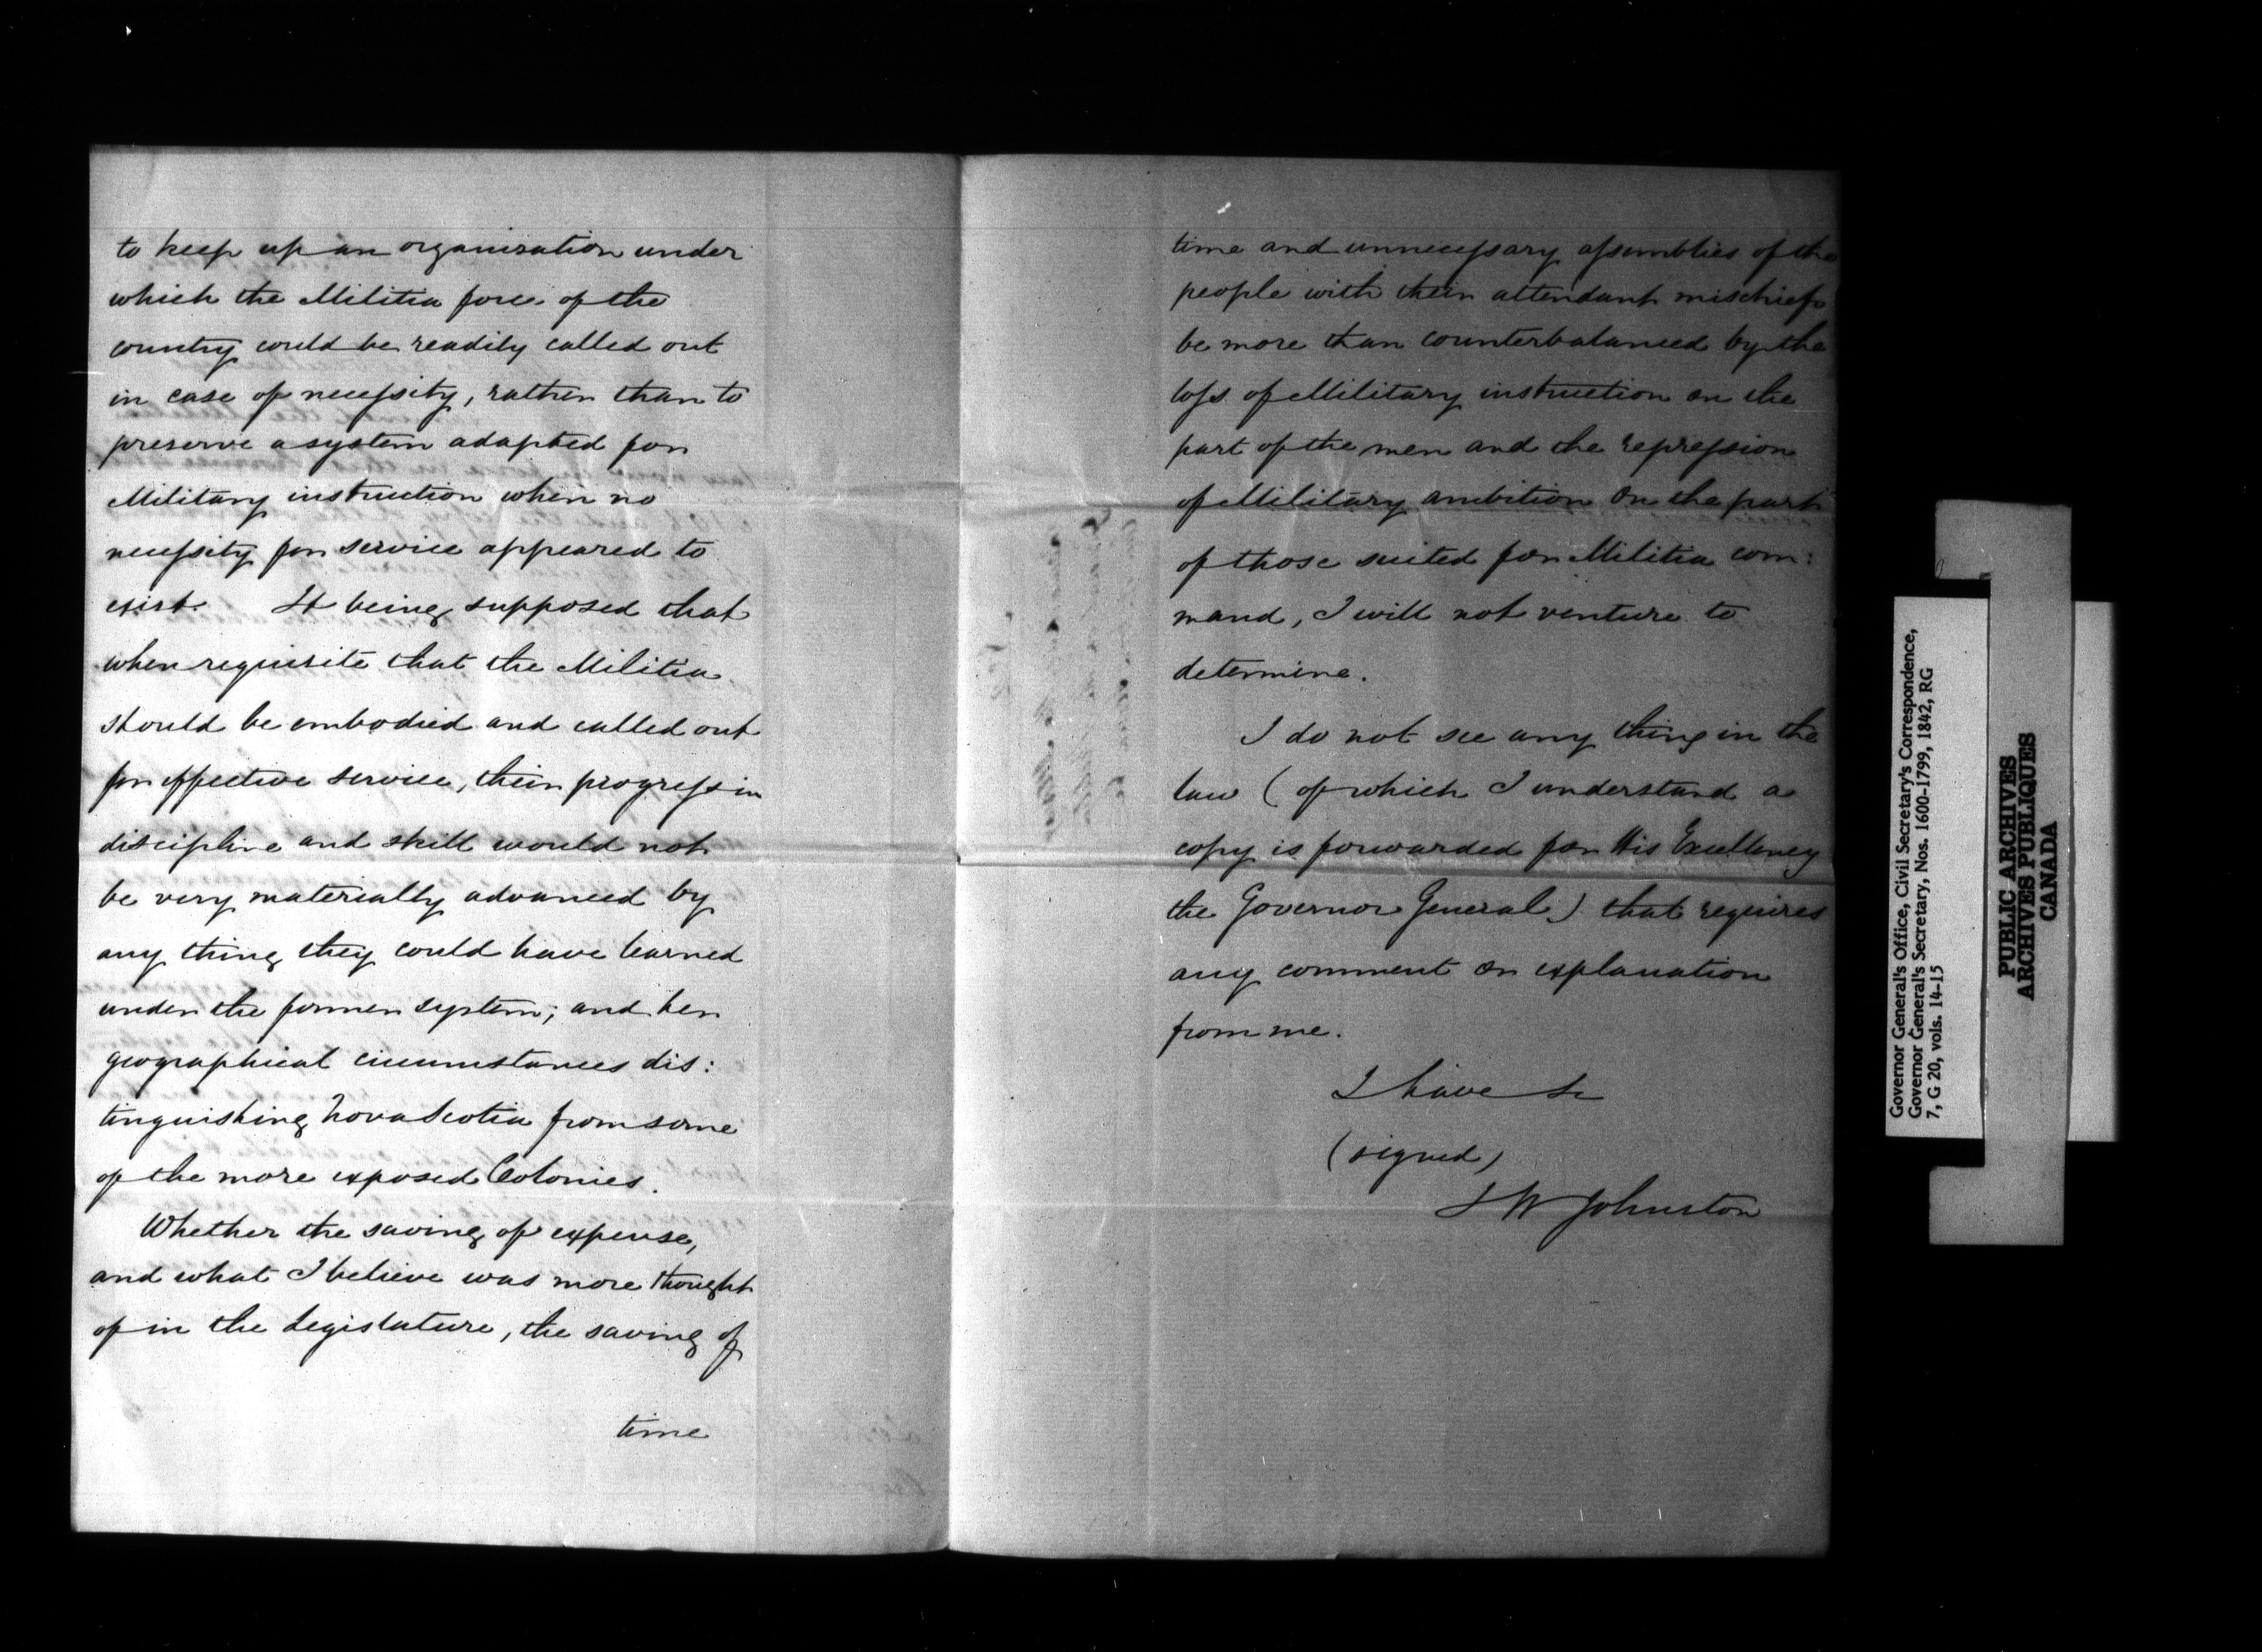 to keep up an organization under
which the Militia force of the
country could be readily called out
in case of necessity, rather than to
preserve a system adapted for
Military instruction when no
necessity for service appeared to
exist. It being supposed that
when requisite that the Militia
should be embodied and called out
for effective service, their progress in
discipline and skill would not
be very materially advanced by
any thing they could have learned
under the former system; and her
geographical circumstances dis:
tinguishing Nova Scotia from some
of the more exposed Colonies.
Whether the saving of expense,
and what I believe was more thought
of in the Legislature, the saving of
time
time and unnecessary assemblies of the
people with their attendant mischiefs
be more than counterbalanced by the
loss of Military instruction on the
part of the men and the repression
of Military ambition on the part
of those suited for Militia com:
mand, I will not venture to
determine.
I do not see any thing in the
law (of which I understand a
copy is forwarded for His Excellency
the Governor General) that requires
any comment or explanation
from me.
I have &c
(signed)
J W Johnston
Governor General's Office, Civil Secretary's Correspondence,
Governor General's Secretary, Nos. 1600-1799, 1842, RG
7, G 20, vols. 14-15
PUBLIC ARCHIVES
ARCHIVES PUBLIQUES
CANADA